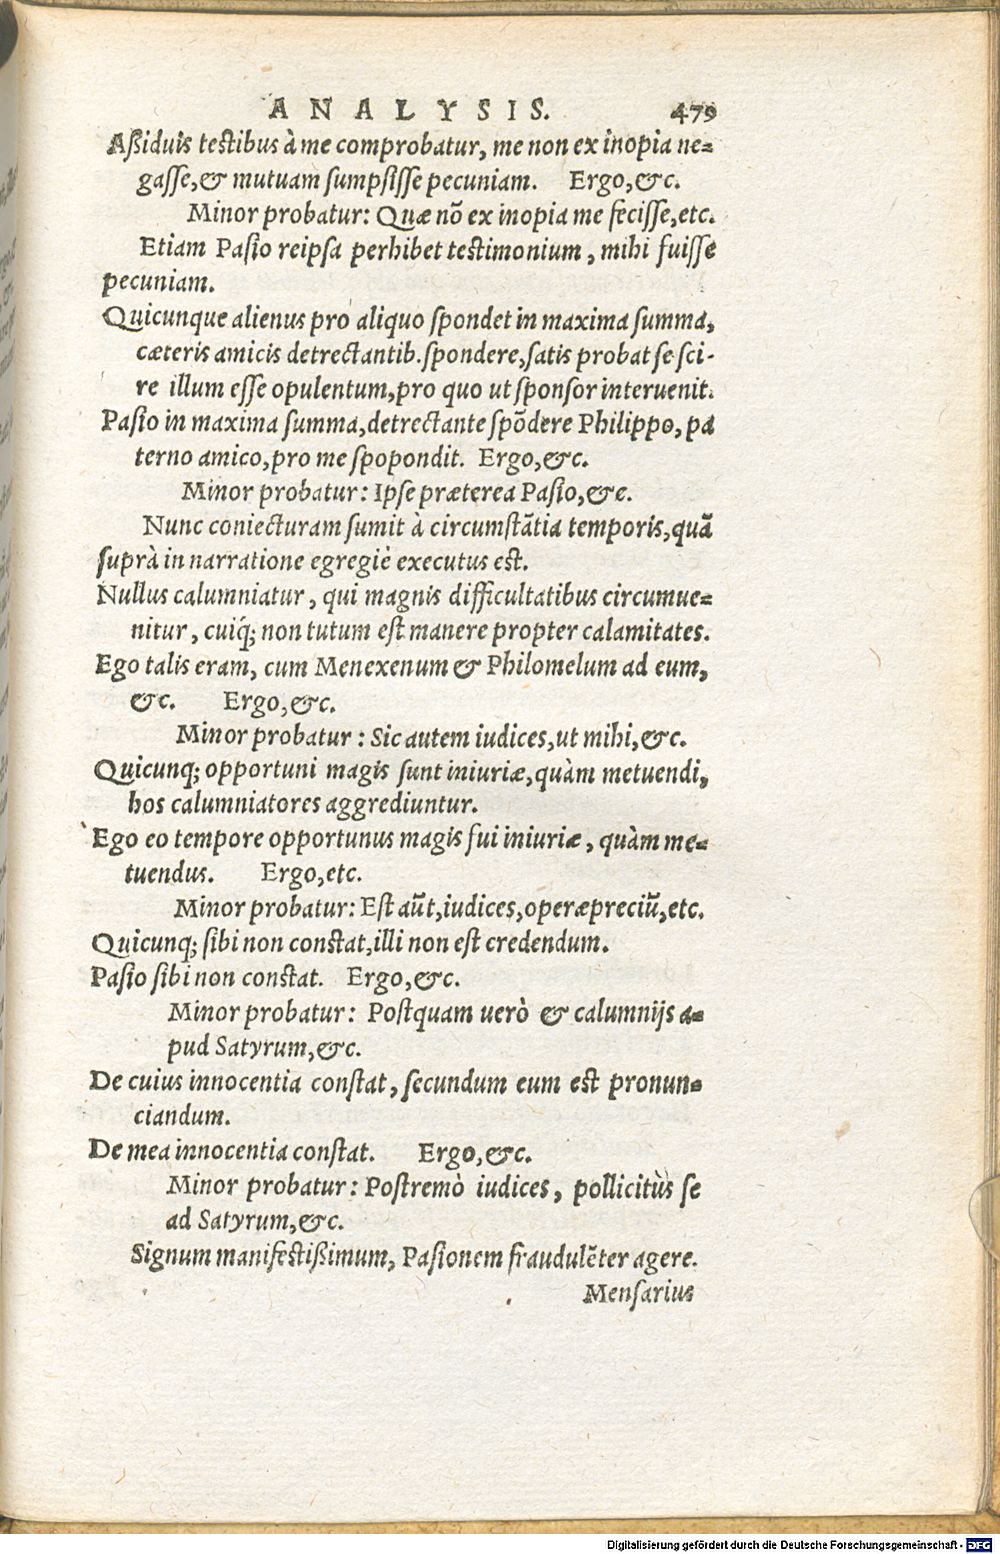 ANALYSIS. 479
Aßiduis testibus à me comprobatur, me non ex inopia ne=
gaſſe, & mutuam ſumpſiſſe pecuniam. Ergo, &c.
Minor probatur: Quæ nō ex inopia me feciſſe, etc.
Etiam Paſio reipſa perhibet testimonium, mihi fuiſſe
pecuniam.
Quicunque alienus pro aliquo ſpondet in maxima ſumma,
cæteris amicis detrectantib. ſpondere, ſatis probat ſe ſci-
re illum eſſe opulentum, pro quo ut ſponſor interuenit.
Paſio in maxima ſumma, detrectante ſpōdere Philippo, pa
terno amico, pro me ſpopondit. Ergo, &c.
Minor probatur: Ipſe præterea Paſio, &c.
Nunc coniecturam ſumit à circumſtātia temporis, quā
ſuprà in narratione egregiè executus est.
Nullus calumniatur, qui magnis difficultatibus circumue=
nitur, cuiq́; non tutum eſt manere propter calamitates.
Ego talis eram, cum Menexenum & Philomelum ad eum,
&c. Ergo, &c.
Minor probatur: Sic autem iudices, ut mihi, &c.
Quicunq; opportuni magis ſunt iniuriæ, quàm metuendi,
hos calumniatores aggrediuntur.
Ego eo tempore opportunus magis fui iniuriæ, quàm me=
tuendus. Ergo, etc.
Minor probatur: Eſt aūt, iudices, operæpreciū, etc.
Quicunq; ſibi non constat, illi non eſt credendum.
Paſio ſibi non constat. Ergo, &c.
Minor probatur: Poſtquam uerò & calumnijs a=
pud Satyrum, &c.
De cuius innocentia conſtat, ſecundum eum est pronun=
ciandum.
De mea innocentia conſtat. Ergo, &c.
Minor probatur: Poſtremò iudices, pollicitùs ſe
ad Satyrum, &c.
Signum manifeſtißimum, Paſionem fraudulēter agere.
Menſarius
Digitalisierung gefördert durch die Deutsche Forschungsgemeinschaft - DFG